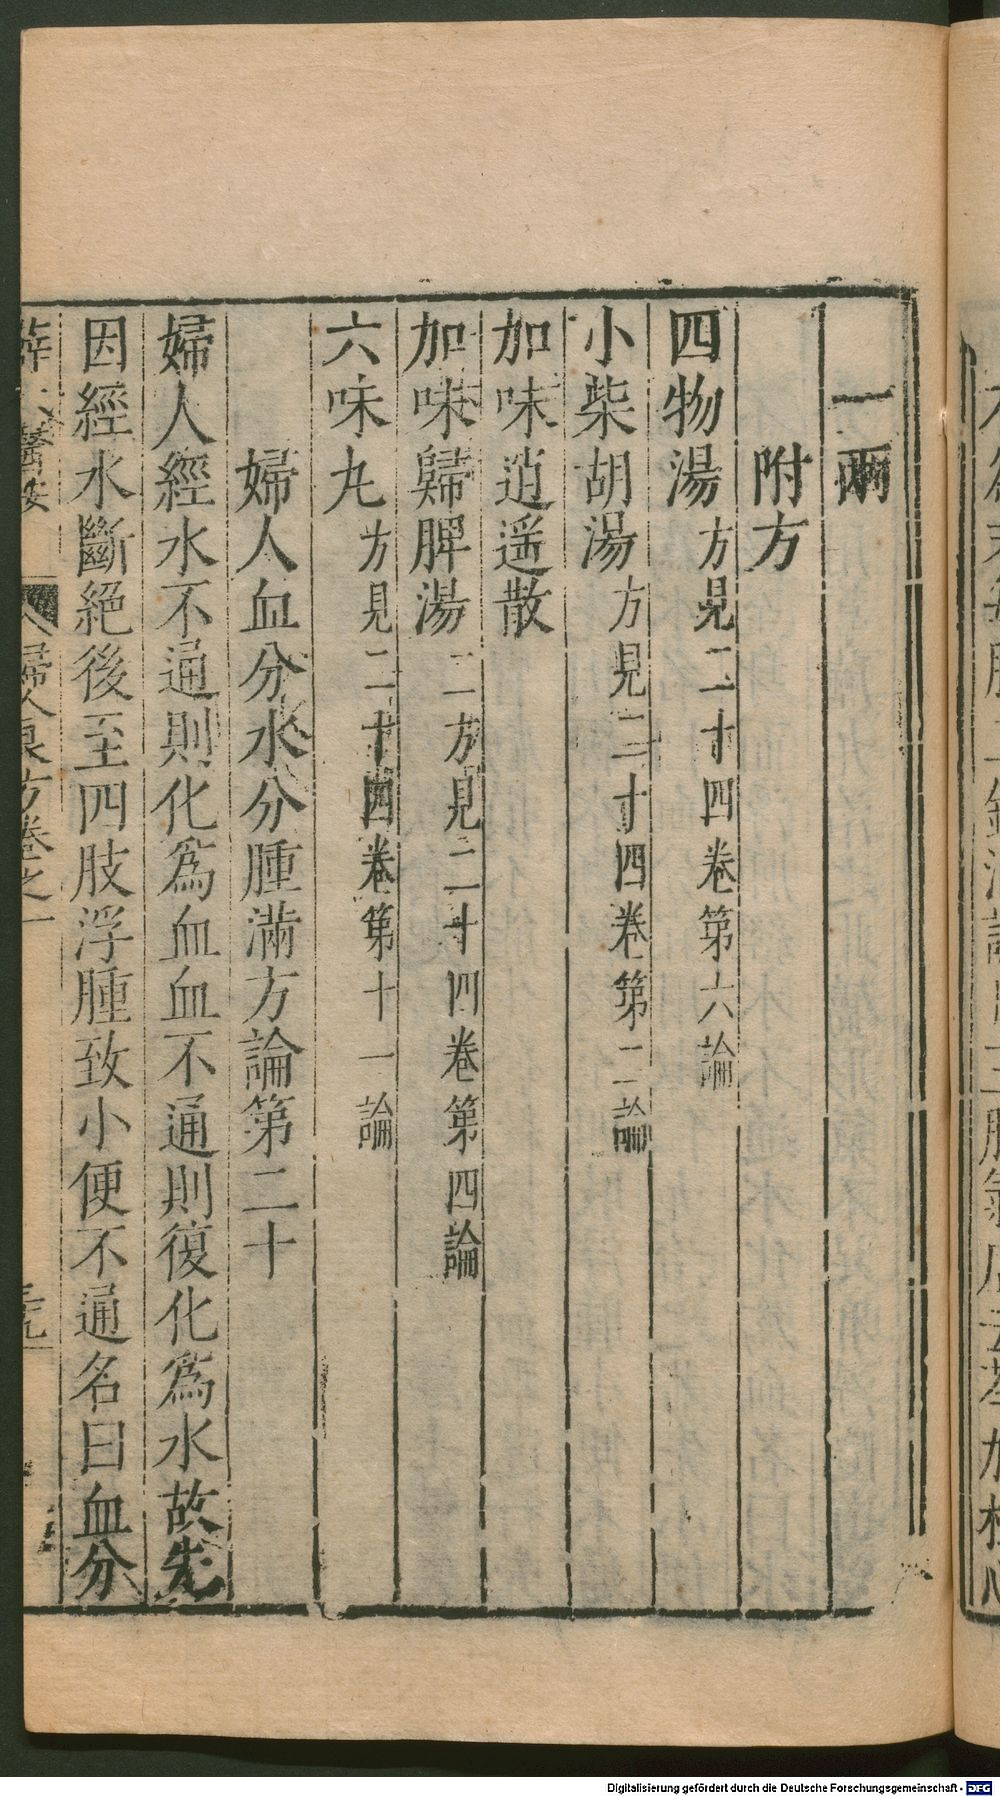 一兩
附方
四物湯方見二十四卷第六論
小柴胡湯方見二十四卷第二論
加味逍遥散
加味歸脾湯二方見二十四卷第四論
六味丸方見二十四卷第十一論
婦人血分水分腫滿方論第二十
婦人經水不通則化爲血血不通則復化爲水故先
因經水斷絕後至四肢浮腫致小便不通名曰血分
婦人良方卷之一
Digitalisierung gefördert durch die Deutsche Forschungsgemeinschaft - DFG